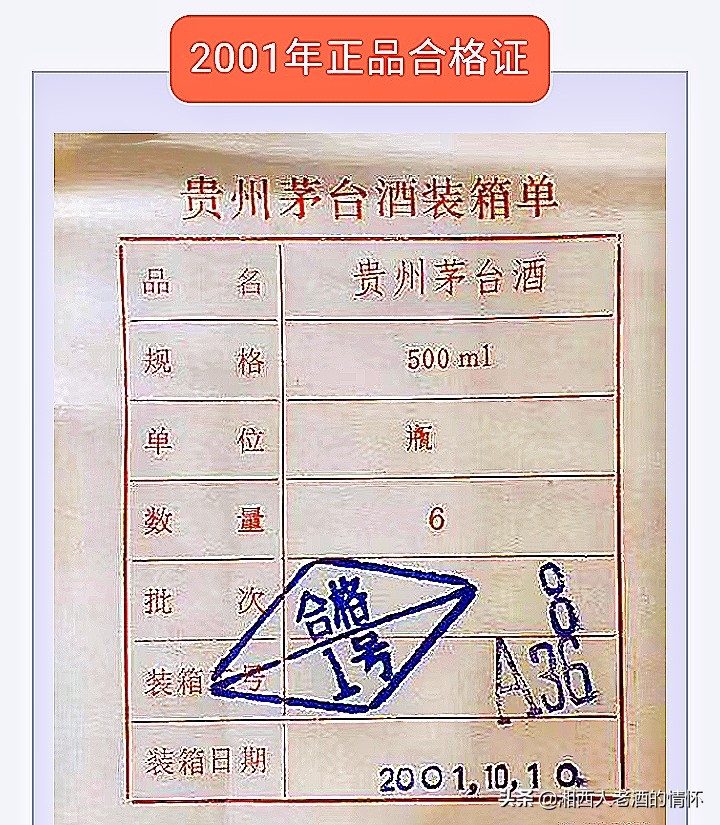 2001年正品合格证
贵州茅台酒装箱单
品 名 贵州茅台酒
规 格 500 ml
单 位 瓶
数 量 6
批 次
合格
1号
8
A36
装箱 号
装箱日期 2001,10,10
头条 @湘西人老酒的情怀